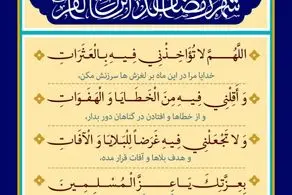 شهر رمضان الذی انزل فیه القرآن
اللَّهُمَّ لا تُؤَاخِذْنِي فِيهِ بِالْعَثَرَاتِ
خدایا مرا در این ماه بر لغزش ها سرزنش مکن،
وَ أَقِلْنِي فِيهِ مِنَ الْخَطَايَا وَ الْهَفَوَاتِ
و از خطاها و افتادن در گناهان دور بدار،
وَ لا تَجْعَلْنِي فِيهِ غَرَضاً لِلْبَلايَا وَ الْآفَاتِ
و هدف بلاها و آفات قرار مده،
بِعِزَّتِكَ يَا عِزَّ الْمُسْلِمِينَ